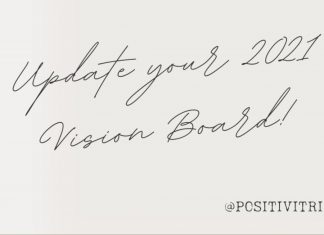 Update your 2021
Vision Board!
@POSITIVITRI